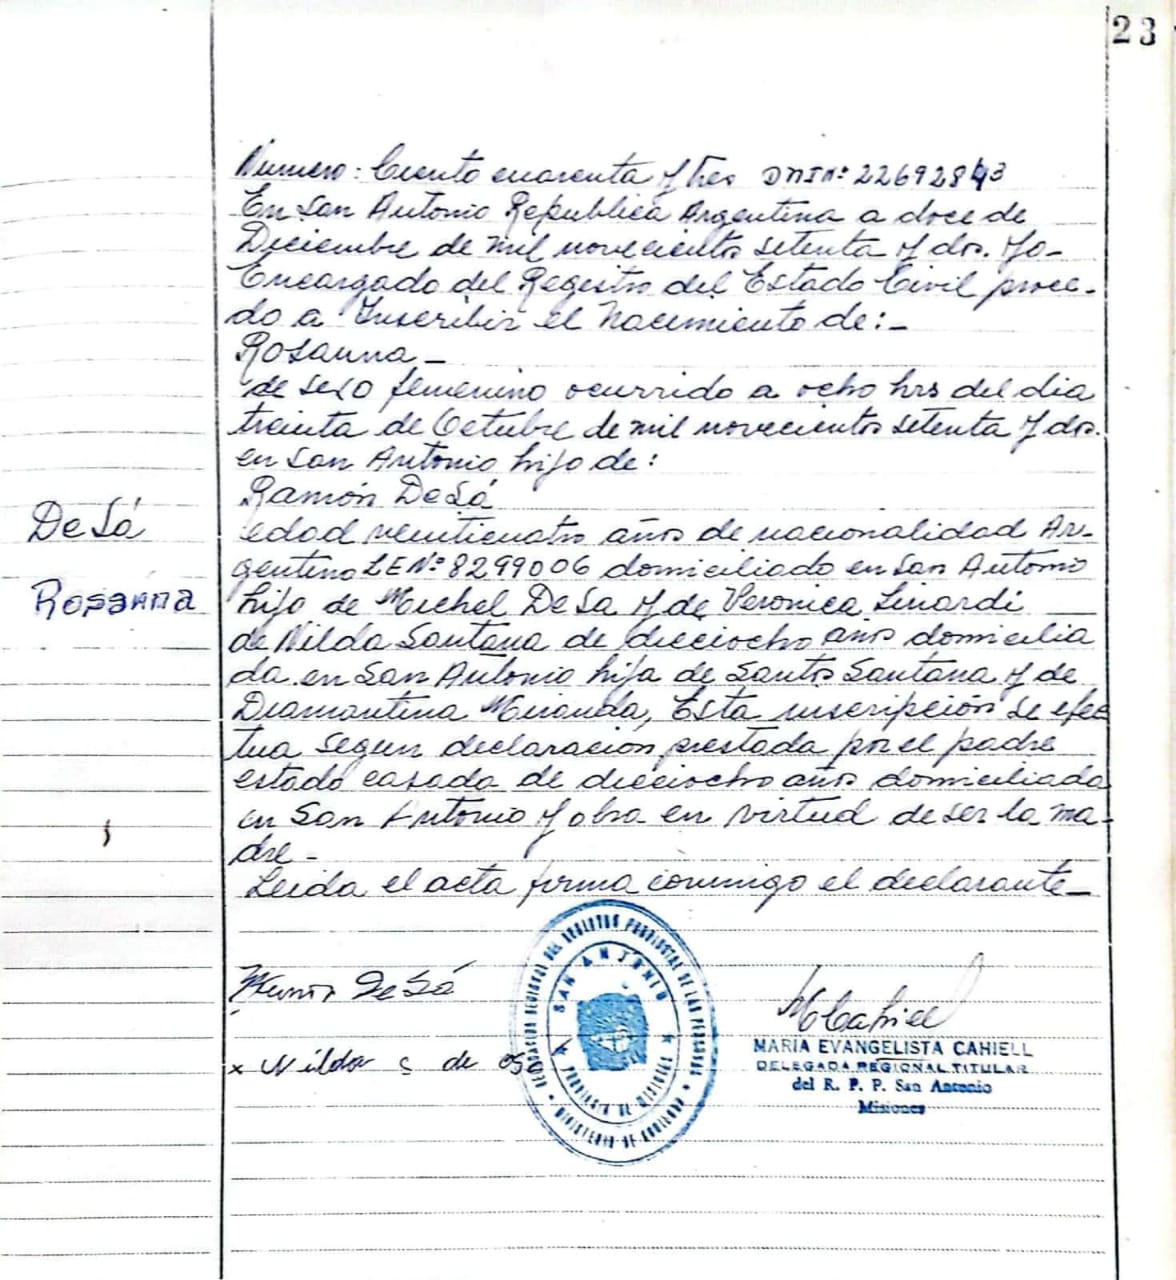 23
Numero: Ciento cuarenta y tres DNIN: 22692843
En San Antonio Republica Argentina a doce de
Diciembre de mil novecientos setenta y dos. Yo-
Encargado del Registro del Estado Civil proce-
do a Inscribir el Nacimiento de:-
Rosanna-
de sexo femenino ocurrido a ocho hrs del dia
treinta de Octubre de mil novecientos setenta y dos.
en San Antonio hijo de:
Ramón De Sá
De Sá
edad veinticuatro años de nacionalidad Ar-
gentino LENº 8299006 domiciliado en San Antonio
Rosanna
hijo de Michel De Sa y de Veronica Linardi
de Nilda Santana de dieciocho años domicilia
da en San Antonio hija de Santos Santana y de
Diamantina Miranda, Esta inscripción se efec
tua segun declaración prestada por el padre
estado casada de dieciocho años domiciliada
en San Antonio y obra en virtud de ser la ma-
dre-
Leida el acta firma conmigo el declarante-
De Sá
x Nilda S de
SAN ANTONIO
PROVINCIA DE MISIONES
MINISTERIO DE GOBIERNO
MCahiell
MARIA EVANGELISTA CAHIELL
DELEGADA REGIONAL TITULAR
del R. P. P. San Antonio
Misiones